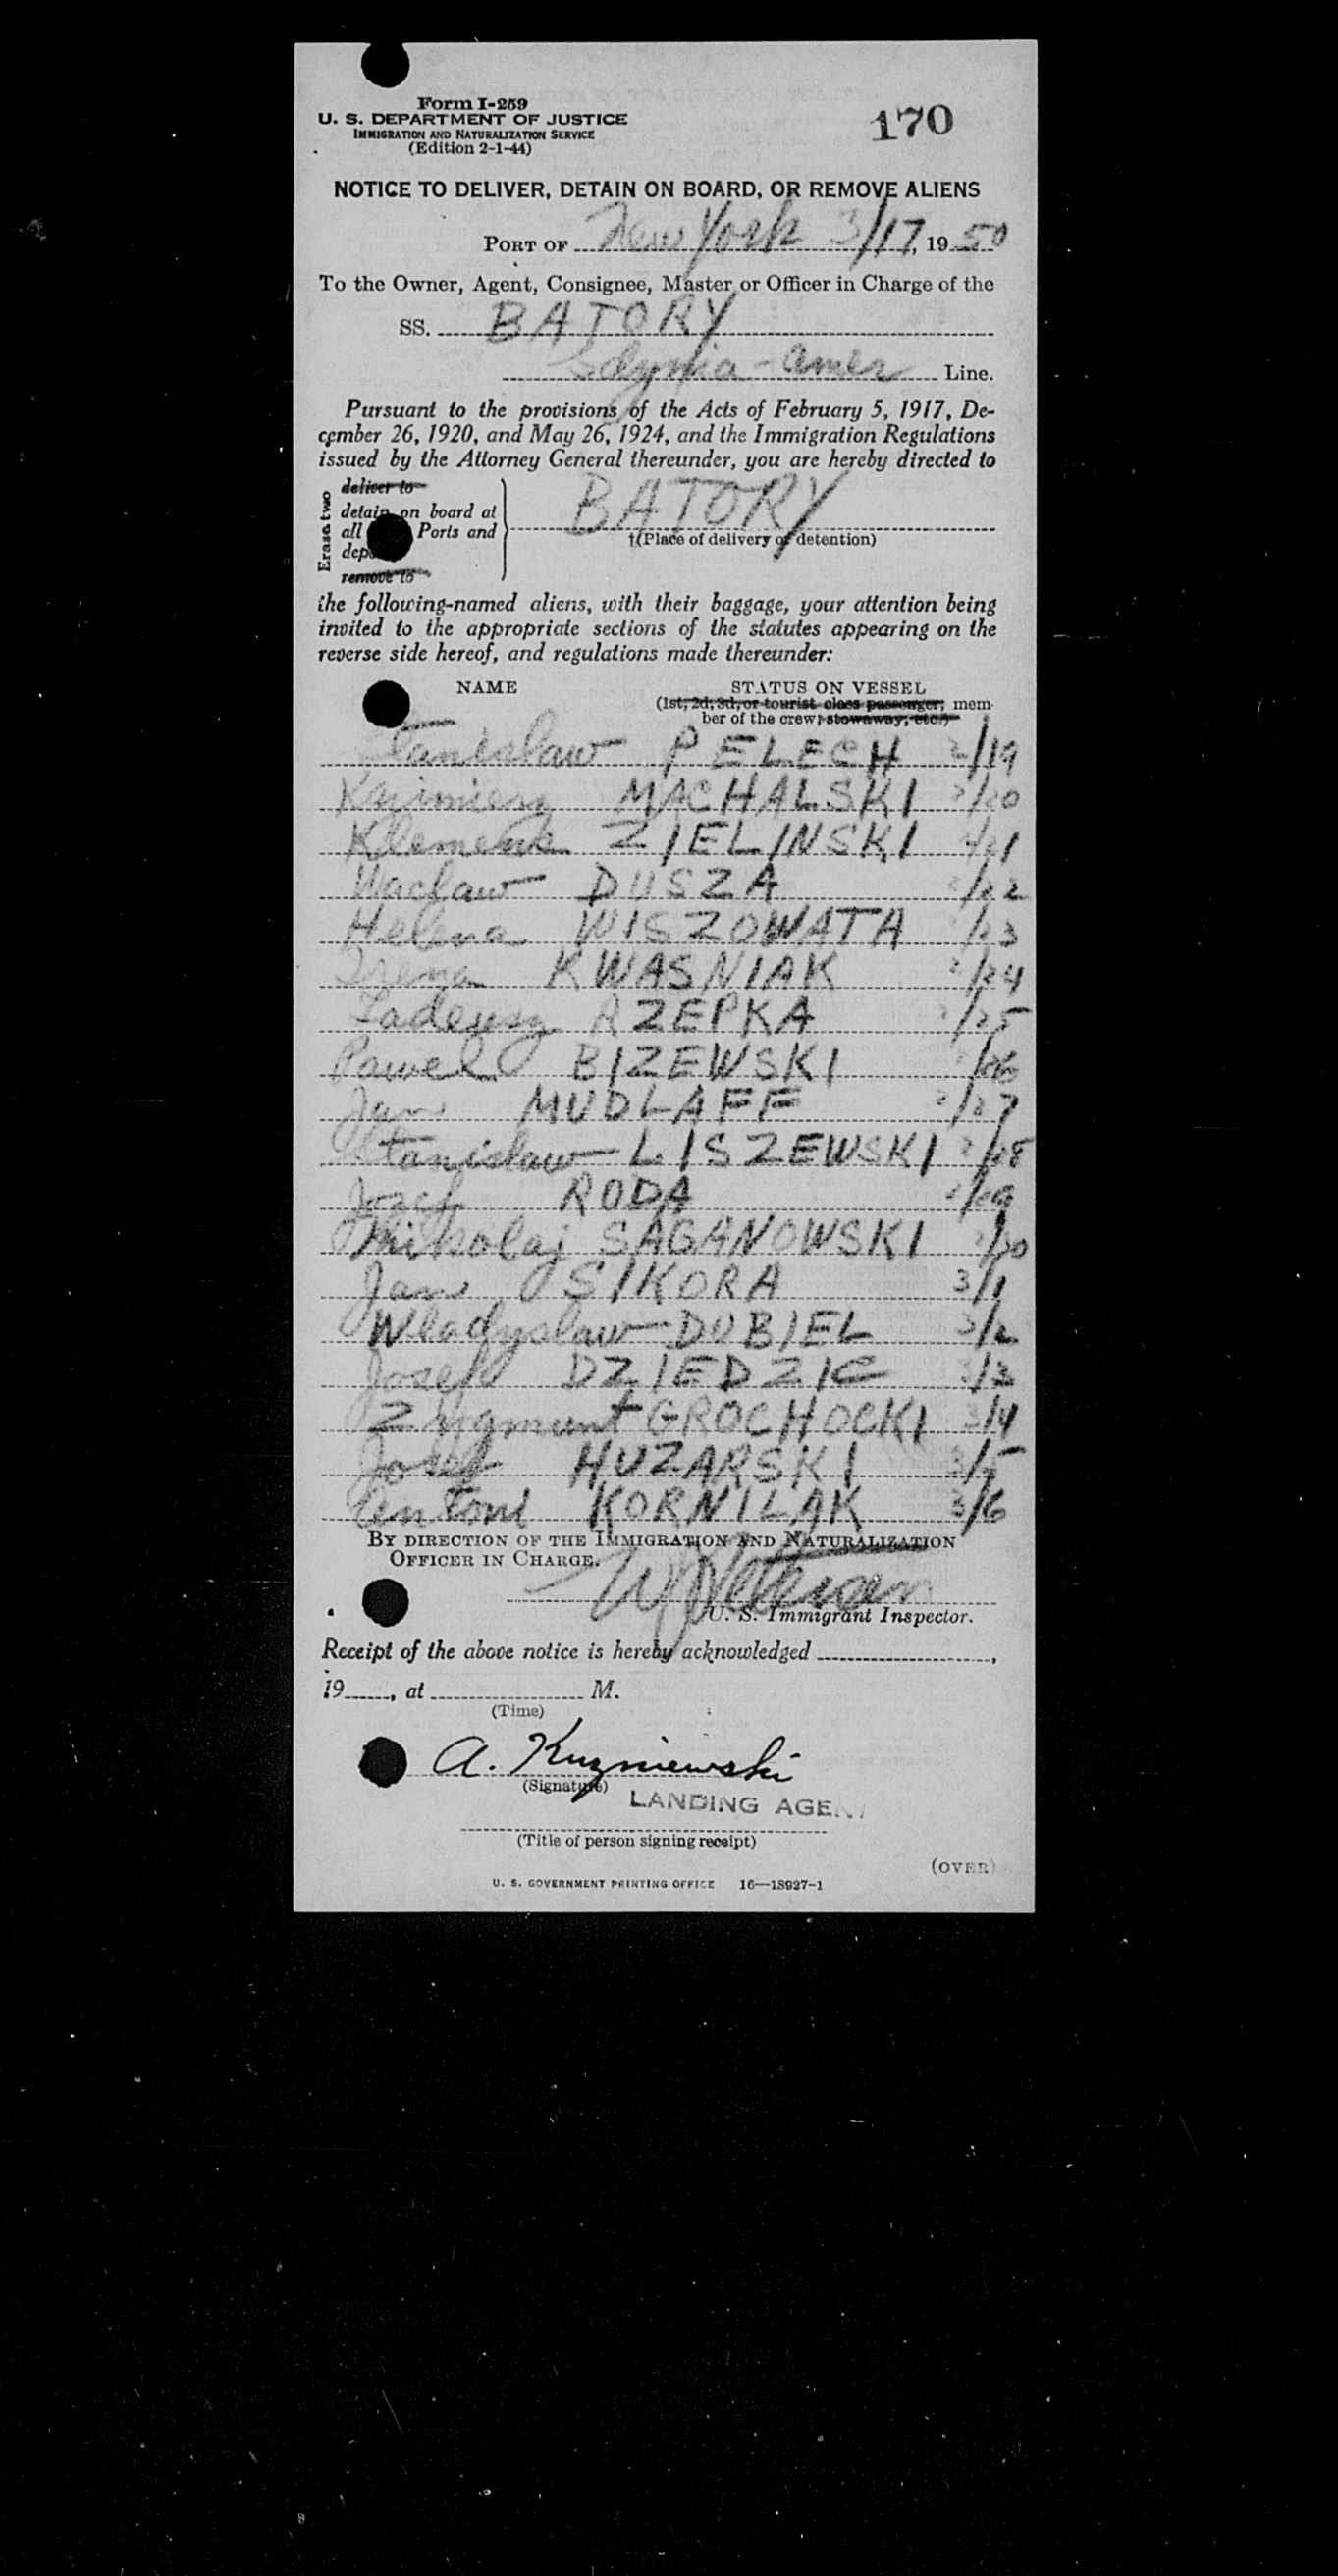 Form I-259
U. S. DEPARTMENT OF JUSTICE
IMMIGRATION AND NATURALIZATION SERVICE
(Edition 2-1-44)
170
NOTICE TO DELIVER, DETAIN ON BOARD, OR REMOVE ALIENS
PORT OF New York 3/17, 1950
To the Owner, Agent, Consignee, Master or Officer in Charge of the
SS. BATORY
Gdynia-Amer Line.
Pursuant to the provisions of the Acts of February 5, 1917, De-
cember 26, 1920, and May 26, 1924, and the Immigration Regulations
issued by the Attorney General thereunder, you are hereby directed to
Erase two
deliver to
detain on board at
all Ports and
remove to
BATORY
†(Place of delivery or detention)
the following-named aliens, with their baggage, your attention being
invited to the appropriate sections of the statutes appearing on the
reverse side hereof, and regulations made thereunder:
NAME STATUS ON VESSEL
(1st, 2d, 3d, or tourist class passenger, mem-
ber of the crew, stowaway, etc.)
Stanislaw PELECH 2/19
Kazimierz MACHALSKI 2/20
Klemens ZIELINSKI 2/21
Waclaw DUSZA 2/22
Helena WISZOWATA 2/23
Irena KWASNIAK 2/24
Tadeusz RZEPKA 2/25
Pawel BIZEWSKI 2/26
Jan MUDLAFF 2/27
Stanislaw LISZEWSKI 2/28
Jozef RODA 2/29
Mikolaj SAGANOWSKI 2/30
Jan SIKORA 3/1
Wladyslaw DUBIEL 3/2
Josef DZIEDZIC 3/3
Zygmunt GROCHOCKI 3/4
Josef HUZARSKI 3/5
Antoni KORNILAK 3/6
BY DIRECTION OF THE IMMIGRATION AND NATURALIZATION
OFFICER IN CHARGE.
U. S. Immigrant Inspector.
Receipt of the above notice is hereby acknowledged ,
19 , at M.
(Time)
A. Kuzniewski
(Signature)
LANDING AGENT
(Title of person signing receipt)
(OVER)
U. S. GOVERNMENT PRINTING OFFICE 16—18927-1